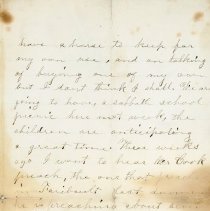 have a horse to keep for
my own use, and am talking
of buying one of my own
but I don't think I shall. We are
going to have a sabbath school
picnic here next week, the
children are anticipating
a great time. Three weeks
ago I went to hear Mr Cook
preach, the one that was
Faribault last summer
he is preaching about